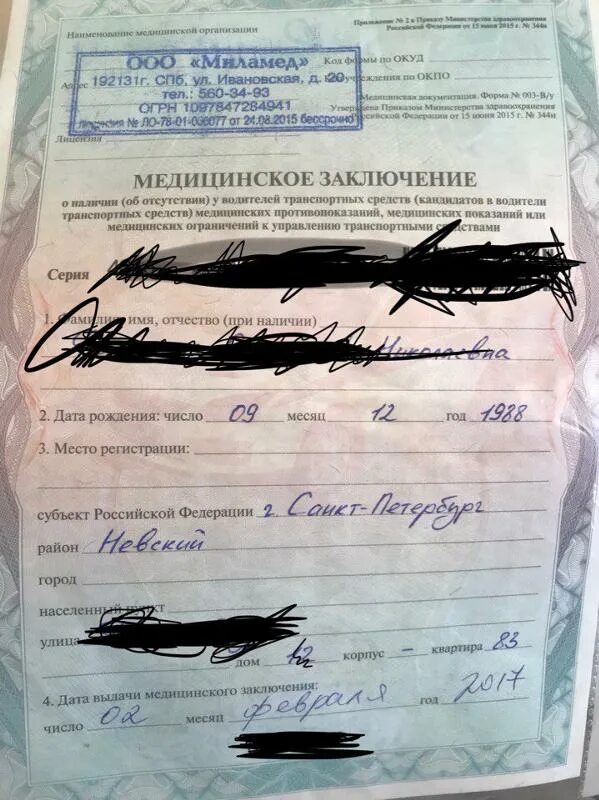 Наименование медицинской организации
Приложение № 2 к Приказу Министерства здравоохранения
Российской Федерации от 15 июня 2015 г. № 344н
ООО «Миламед»
Код формы по ОКУД
Адрес 192131г. СПб, ул. Ивановская, д. 20
учреждения по ОКПО
тел.: 560-34-93
Медицинская документация. Форма № 003-В/у
ОГРН 1097847284941
Утверждена Приказом Министерства здравоохранения
Российской Федерации от 15 июня 2015 г. № 344н
лицензия № ЛО-78-01-006077 от 24.08.2015 бессрочно
Лицензия
МЕДИЦИНСКОЕ ЗАКЛЮЧЕНИЕ
о наличии (об отсутствии) у водителей транспортных средств (кандидатов в водители
транспортных средств) медицинских противопоказаний, медицинских показаний или
медицинских ограничений к управлению транспортными средствами
Серия
1. Фамилия, имя, отчество (при наличии)
Николаевна
2. Дата рождения: число 09 месяц 12 год 1988
3. Место регистрации:
субъект Российской Федерации г. Санкт-Петербург
район Невский
город
населенный пункт
улица
дом 12 корпус – квартира 83
4. Дата выдачи медицинского заключения:
число 02 месяц февраля год 2017